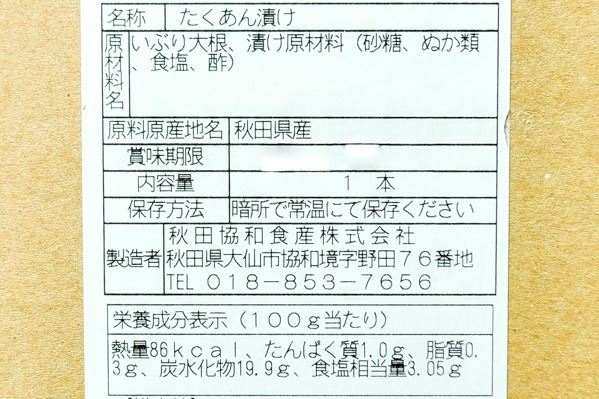 名称 たくあん漬け
原材料名 いぶり大根、漬け原材料（砂糖、ぬか類
、食塩、酢）
原料原産地名 秋田県産
賞味期限
内容量 １ 本
保存方法 暗所で常温にて保存ください
製造者 秋田協和食産株式会社
秋田県大仙市協和境字野田７６番地
TEL ０１８－８５３－７６５６
栄養成分表示（１００ｇ当たり）
熱量86ｋｃａｌ、たんぱく質1.0ｇ、脂質0.
3ｇ、炭水化物19.9ｇ、食塩相当量3.05ｇ